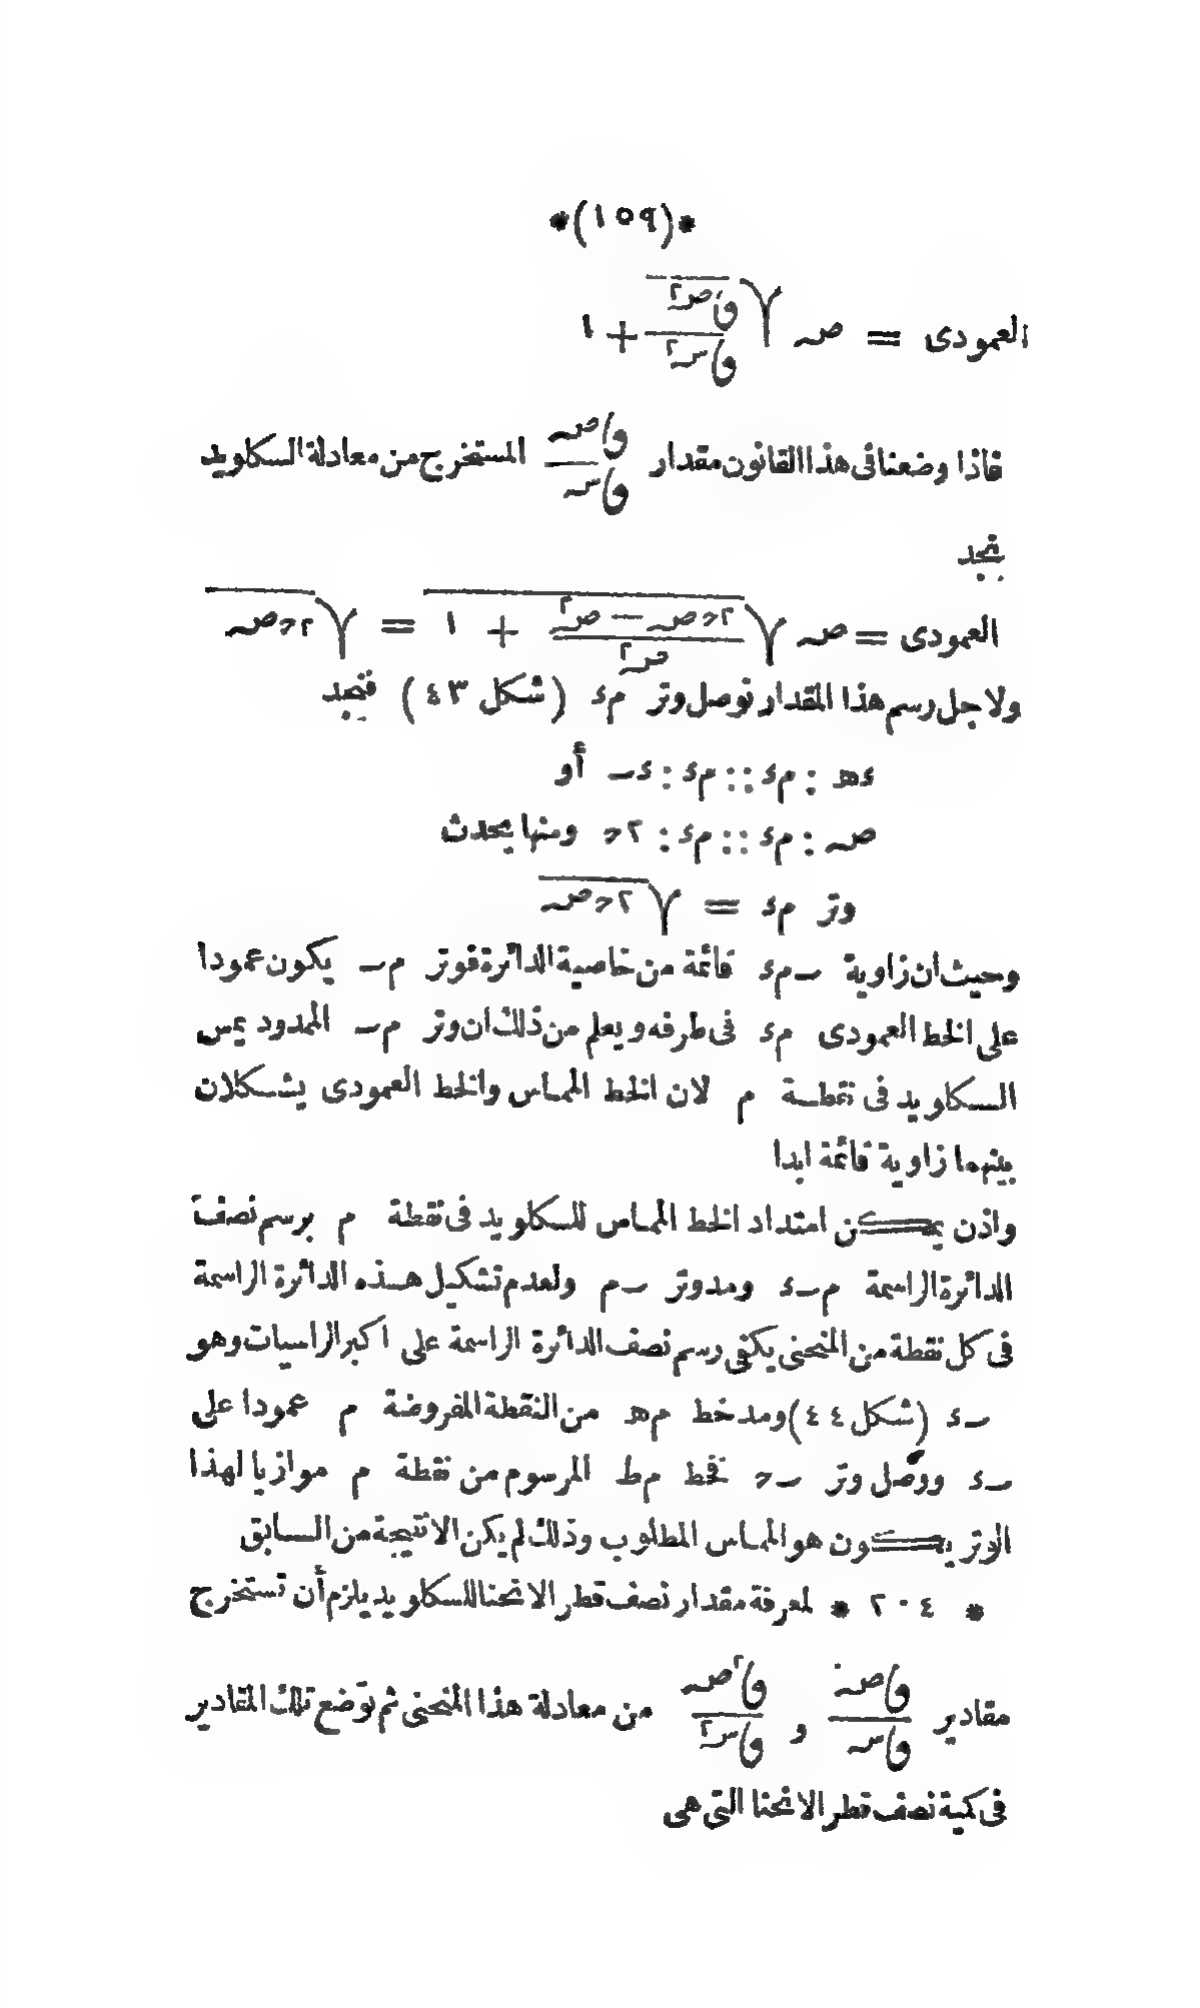 *(١٥٩)*
العمودى = صـ √(ڡاصـ٢/ڡاسـ٢ + ١)
فاذا وضعنا فى هذا القانون مقدار ڡاصـ/ڡاسـ المستخرج من معادلة السكاويد
نجد
العمودى = صـ √((٢حصـ − صـ٢)/صـ٢ + ١) = √(٢حصـ)
ولاجل رسم هذا المقدار نوصل وتر مء (شكل ٤٣) فنجد
ءهـ : مء :: مء : ءب أو
صـ : مء :: مء : ٢ح ومنها يحدث
وتر مء = √(٢حصـ)
وحيث ان زاوية ب‍مء قائمة من خاصية الدائرة فوتر مب يكون عمودا
على الخط العمودى مء فى طرفه ويعلم من ذلك ان وتر مب الممدود يمس
السكاويد فى نقطة م لان الخط المماس والخط العمودى يشكلان
بينهما زاوية قائمة ابدا
واذن يمكن امتداد الخط المماس للسكاويد فى نقطة م برسم نصف
الدائرة الراسمة مبء ومد وتر بم ولعدم تشكيل هذه الدائرة الراسمة
فى كل نقطة من المنحنى يكفى رسم نصف الدائرة الراسمة على اكبر الراسيات وهو
بء (شكل ٤٤) ومد خط مهـ من النقطة المفروضة م عمودا على
بء ووصل وتر بح فخط مط المرسوم من نقطة م موازيا لهذا
الوتر يكون هو المماس المطلوب وذلك لم يكن الا نتيجة من السابق
* ٢٠٤ * لمعرفة مقدار نصف قطر الانحنا للسكاويد يلزم أن تستخرج
مقادير ڡاصـ/ڡاسـ و ڡا٢صـ/ڡاسـ٢ من معادلة هذا المنحنى ثم توضع تلك المقادير
فى كمية نصف قطر الانحنا التى هى